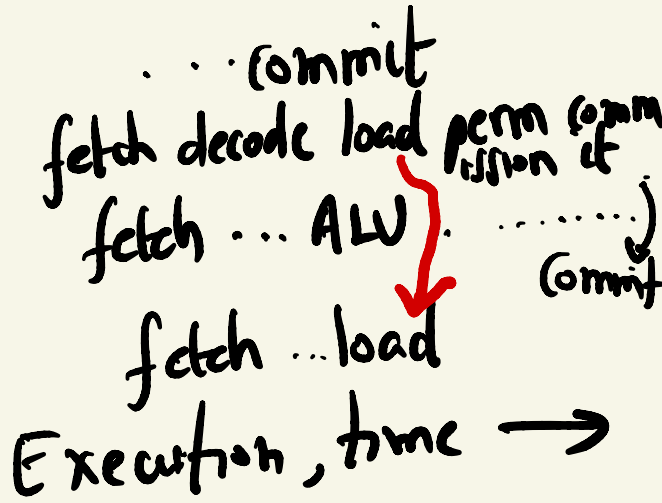 ... commit
fetch decode load permission commit
fetch ... ALU . ........
commit
fetch ... load
Execution, time →